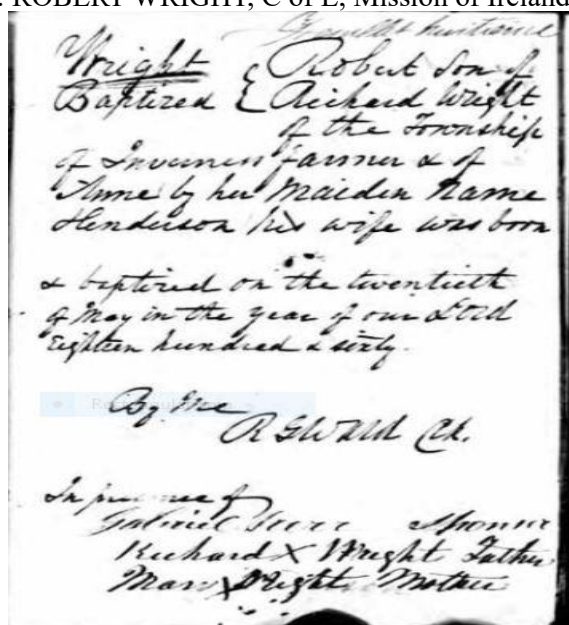 . ROBERT WRIGHT, C of E, Mission of Ireland
Wright { Robert Son of
Baptized { Richard Wright
of the Township
of Inverness farmer & of
Anne by her Maiden Name
Henderson his wife was born
& baptized on the twentieth
of May in the year of our Lord
Eighteen hundred & sixty.
By Me
R G Ward Ck.
In presence of
Gabriel Sponsor
Richard X Wright Father
Mary X Wright Mother